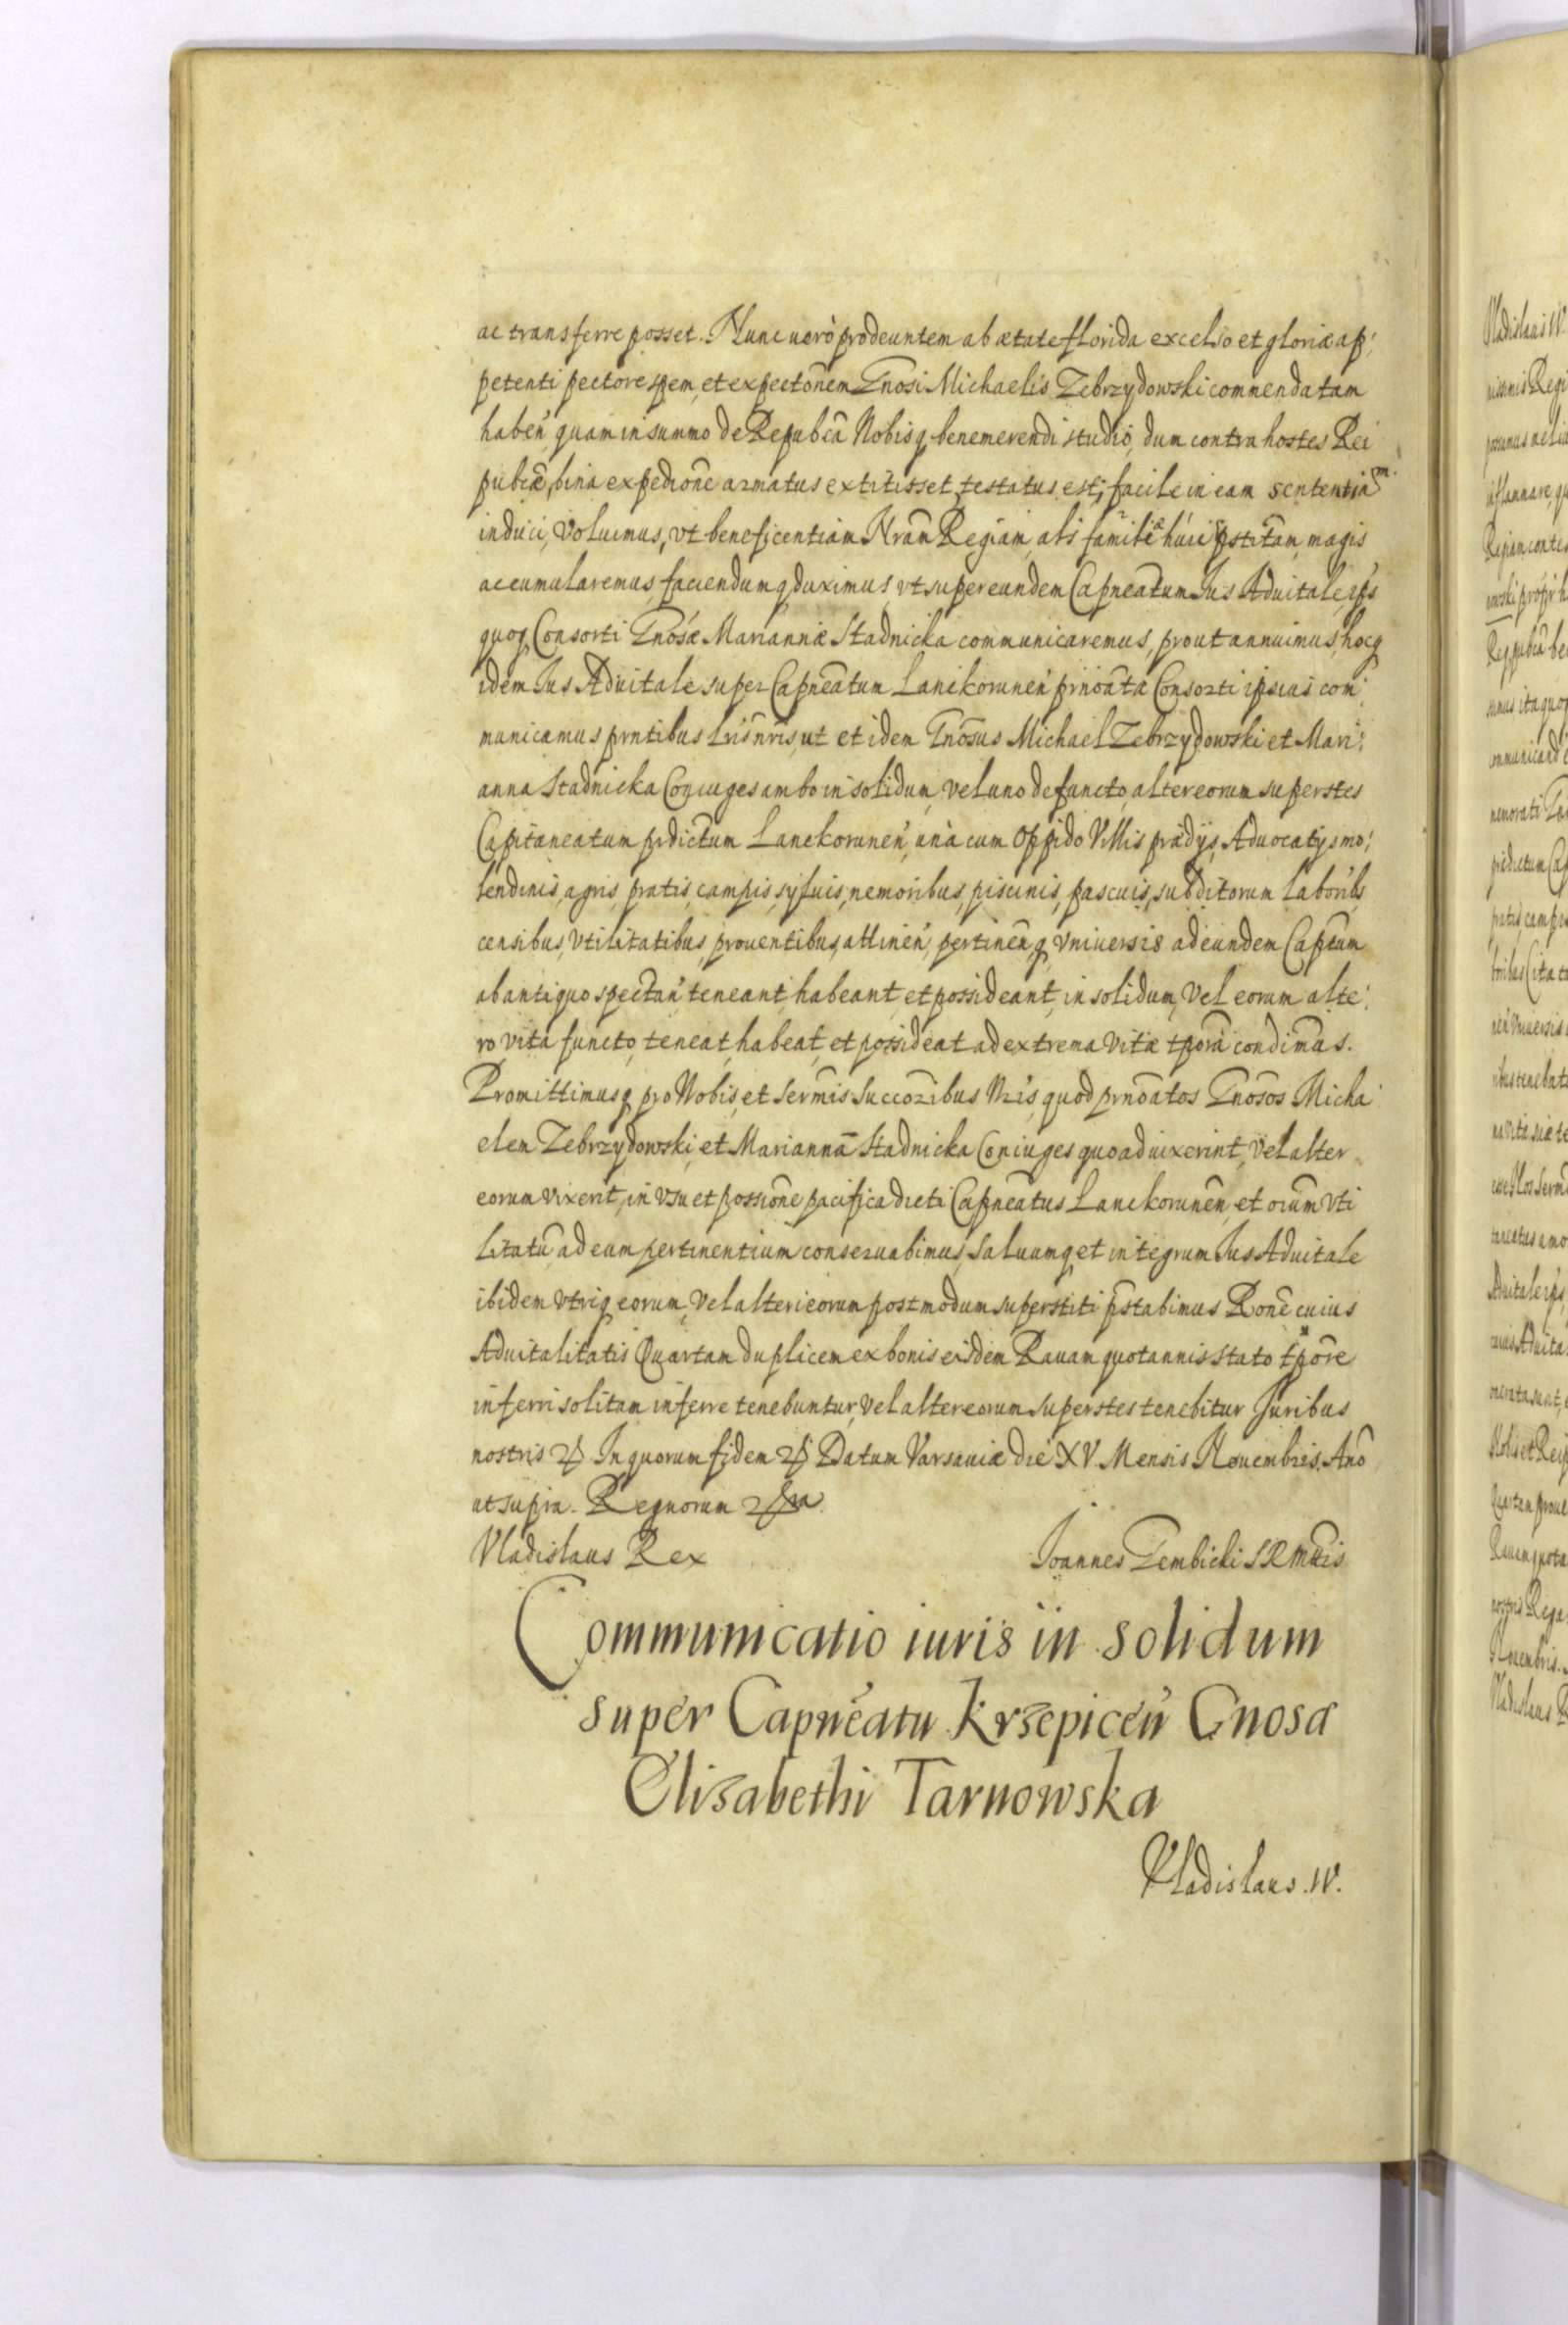 ac transferre posset. Nunc uerò prodeuntem ab ætate florida excelso et gloriæ ap:
petenti pectore spem, et expectonem Gnosi Michaelis Zebrzydowski commendatam
haben, quam in summo de Repubca Nobisq benemerendi studio, dum contra hostes Rei
publæ, bina expedione armatus extitisset, testatus est, facile in eam sententiam
induci, Voluimus, vt beneficentiam Nram Regiam, abs familiæ huic pstitam, magis
accumularemus, faciendumq duximus, vt super eundem Capneatum Ius Aduitale, ips
quoq Consorti Gnosæ Mariannæ Stadnicka communicaremus, prout annuimus, hocq
idem Ius Aduitale super Capneatum Lanckorunen prnoatæ Consorti ipsius com:
municamus prntibus Lris nris, ut et idem Gnosus Michael Zebrzydowski et Mari:
anna Stadnicka Coniuges ambo in solidum, vel uno defuncto, alter eorum superstes
Capitaneatum prdictum Lanckorunen, unà cum Oppido Villis prædijs, Aduocatijs mo:
lendinis, agris, pratis, campis, syluis, nemoribus, piscinis, pascuis, subditorum laboribs
censibus, Vtilitatibus, prouentibus, attinen, pertinenq, Vniuersis ad eundem Captum
ab antiquo spectan, teneant, habeant, et possideant, in solidum, Vel eorum alte:
ro vita functo, teneat, habeat, et possideat ad extrema Vitæ tpora condimas.
Promittimusq pro Nobis, et Sermis Succoribus Nris, quod prnoatos Gnosos Micha
elem Zebrzydowski, et Mariannã Stadnicka Coniuges quoad uixerint, Vel alter
eorum vixerit, in Vsu et possione pacifica dicti Capneatus Lanckorunen, et oium Vti
litatũ ad eum pertinentium conseruabimus, Saluumq et integrum Ius Aduitale
ibidem Vtriq eorum, Vel alteri eorum postmodum superstiti pstabimus Rone cuius
Aduitalitatis Quartam duplicem ex bonis eisdem Rauam quotannis stato tpore
inferri solitam inferre tenebuntur, Vel alter eorum superstes tenebitur Juribus
nostris In quorum fidem Datum Varsauiæ die XV. Mensis Nouembris. Ano
ut supra. Regnorum
Vladislaus Rex
Joannes Gembicki S R Mttis
Communicatio iuris in solidum
super Capneatu Krzepicen Gnosa
Elisabethi Tarnowska
Vladislaus .IV.